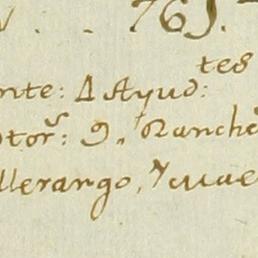 V . . 765.
tes
nte: 4 Ayud:
tor: 9,, Ranche
llerango, Y cuae